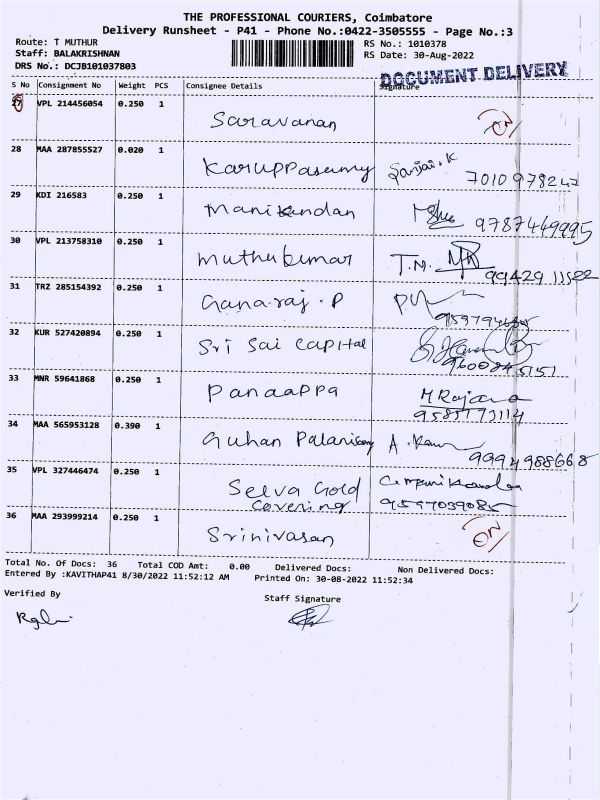 THE PROFESSIONAL COURIERS, Coimbatore
Delivery Runsheet - P41 - Phone No.:0422-3505555 - Page No.:3
Route: T MUTHUR
RS No.: 1010378
Staff: BALAKRISHNAN
RS Date: 30-Aug-2022
DRS No.: DCJB101037803
DOCUMENT DELIVERY
S No Consignment No Weight PCS Consignee Details Signature
27 VPL 214456054 0.250 1 Saravanan
28 MAA 287855527 0.020 1 Karuppasamy Sanjai.K 7010978247
29 KDI 216583 0.250 1 Manikandan 9787449995
30 VPL 213758310 0.250 1 Muthukumar T.M. 99429 11522
31 TRZ 285154392 0.250 1 Ganaraj.P
32 KUR 527420894 0.250 1 Sri Sai Capital 9600845151
33 MNR 59641868 0.250 1 Panaappa M Rajana 9585173114
34 MAA 565953128 0.390 1 Guhan Palanisamy 9994988668
35 VPL 327446474 0.250 1 Selva Gold Covering 9597039085
36 MAA 293999214 0.250 1 Srinivasan
Total No. Of Docs: 36 Total COD Amt: 0.00 Delivered Docs: Non Delivered Docs:
Entered By :KAVITHAP41 8/30/2022 11:52:12 AM Printed On: 30-08-2022 11:52:34
Verified By
Staff Signature